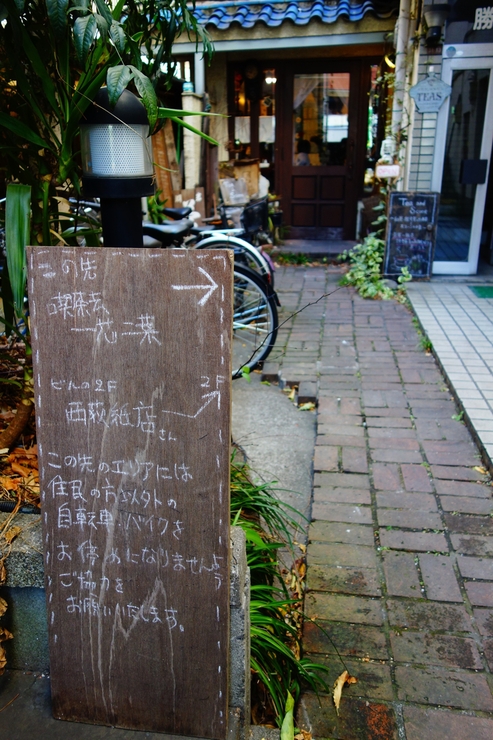 この先
喫茶去
一芯二葉
ビルの2F
2F
西荻紙店さん
この先のエリアには
住民の方以外の
自転車、バイクを
お停めになりませんよう
ご協力を
お願いいたします。
TEAS
Tea and